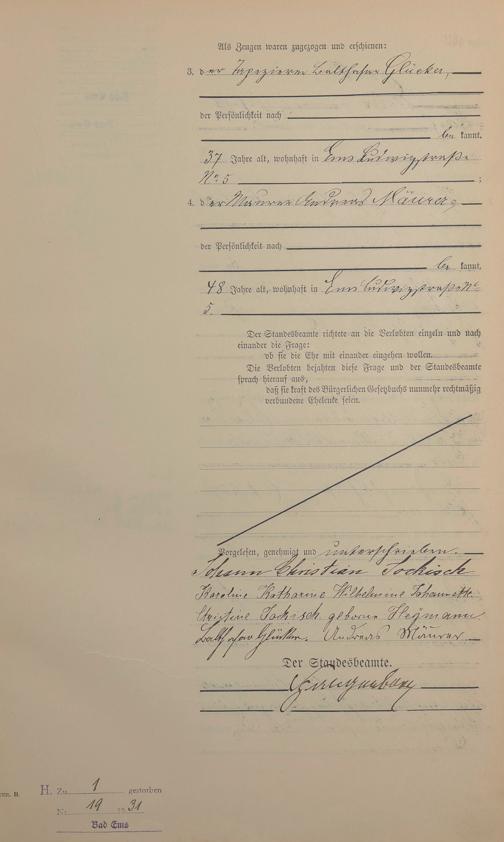 Als Zeugen waren zugezogen und erschienen:
3. der Tapezierer Balthasar Glücker,
der Persönlichkeit nach
be kannt.
37 Jahre alt, wohnhaft in Ems Ludwigstraße
No 5 ;
4. der Maurer Andreas Mäurer,
der Persönlichkeit nach
be kannt.
48 Jahre alt, wohnhaft in Ems Ludwigstraße No
5.
Der Standesbeamte richtete an die Verlobten einzeln und nach
einander die Frage:
ob sie die Ehe mit einander eingehen wollen.
Die Verlobten bejahten diese Frage und der Standesbeamte
sprach hierauf aus,
daß sie kraft des Bürgerlichen Gesetzbuchs nunmehr rechtmäßig
verbundene Eheleute seien.
Vorgelesen, genehmigt und unterschrieben.
Johann Christian Jockisch
Karoline Katharine Wilhelmine Johannette
Christine Jockisch geborne Heymann
Balthasar Glücker. Andreas Mäurer
Der Standesbeamte.
H. Zu 1 gestorben
Nr. 19 1931
Bad Ems